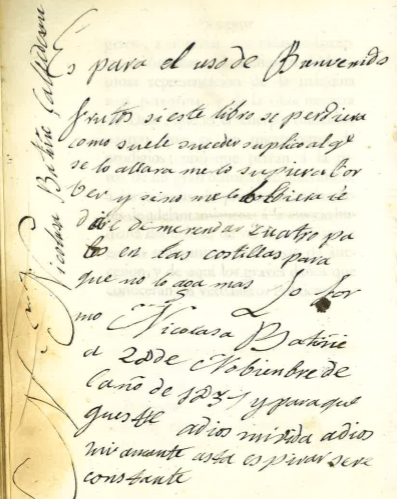 Es para el uso de Banvenido
frutos si este libro se perdiera
como suele suceder suplico al q.e
se lo allara me lo supiera bor
ber y sino me lo bolbiera le
dare de merendar zuatro pa
los en las costillas para
que no lo aga mas Lo for
mo Nicolasa Batiñe
a 28 de Nobienbre de
año de 1837 y para que
adios mi vida adios
mi amante asta espirar sere
constante
Nicolasa Batiñe